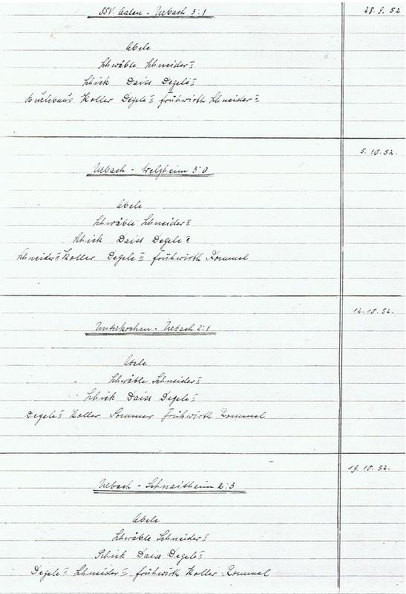 SSV. Aalen - Urbach 3:1 28.9.52
Abele
Schwäble Schneider I
Schiek Daiss Degele I
Koller Degele II Frühwirth Schneider II
Urbach - Welzheim 5:0 5.10.52
Abele
Schwäble Schneider I
Schiek Daiss Degele I
Schneider II Koller Degele II Frühwirth Rommel
Unterkochen - Urbach 2:1 12.10.52.
Abele
Schwäble Schneider I
Schiek Daiss Degele I
Degele II Koller Sommer Frühwirth Rommel
Urbach - Schnaitheim 2:3 19.10.52.
Abele
Schwäble Schneider I
Schiek Daiss Degele I
Degele II Schneider II Frühwirth Koller Rommel